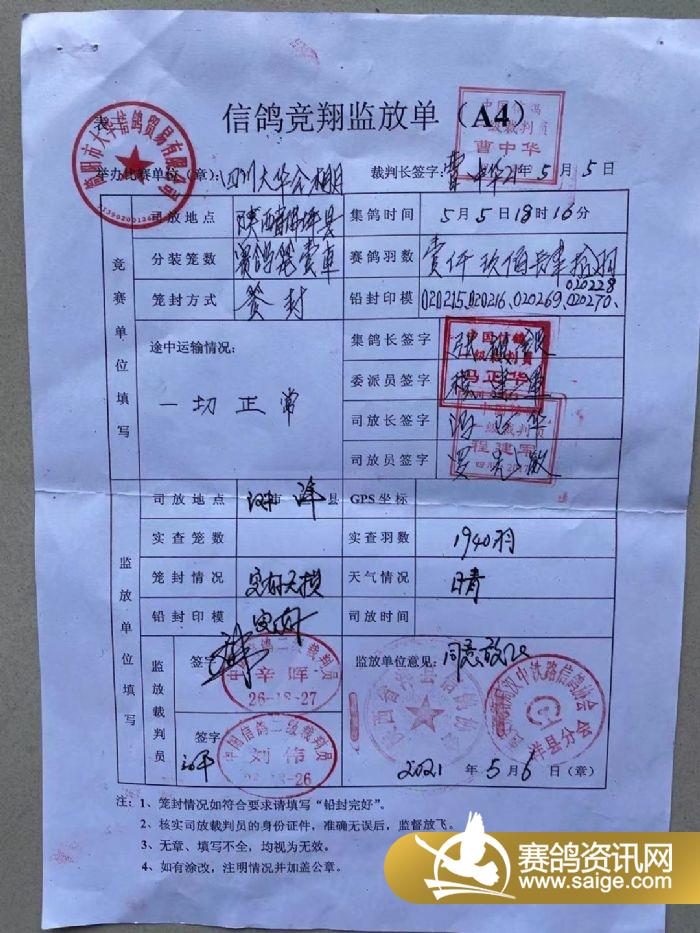 信鸽竞翔监放单（A4）
表一
中国信鸽
一级裁判员
曹中华
简阳市大华信鸽贸易有限公司
举办比赛单位（章）：四川大华公棚 裁判长签字：曹中华 21年5月5日
竞赛单位填写
司放地点 陕西省洋县 集鸽时间 5月5日18时16分
分装笼数 赛鸽笼壹车 赛鸽羽数 壹仟玖佰肆拾羽
020228
笼封方式 签封 铅封印模 020215、020216、020269、020270、
途中运输情况：
一切正常
集鸽长签字
委派员签字
司放长签字 冯正华
司放员签字
中国信鸽
一级裁判员
冯正华
一级裁判员
程建军
监放单位填写
司放地点 汉中市 洋县 GPS坐标
实查笼数 实查羽数 1940羽
笼封情况 完好无损 天气情况 晴
铅封印模 完好 司放时间
监放裁判员
签字
中国信鸽二级裁判员
26-18-27
签字
中国信鸽二级裁判员
刘伟
监放单位意见：同意放飞
陕西省汉中市信鸽协会
汉中铁路信鸽协会
洋县分会
2021年5月6日（章）
注：1、笼封情况如符合要求请填写“铅封完好”。
2、核实司放裁判员的身份证件，准确无误后，监督放飞。
3、无章、填写不全，均视为无效。
4、如有涂改，注明情况并加盖公章。
赛鸽资讯网
www.saige.com